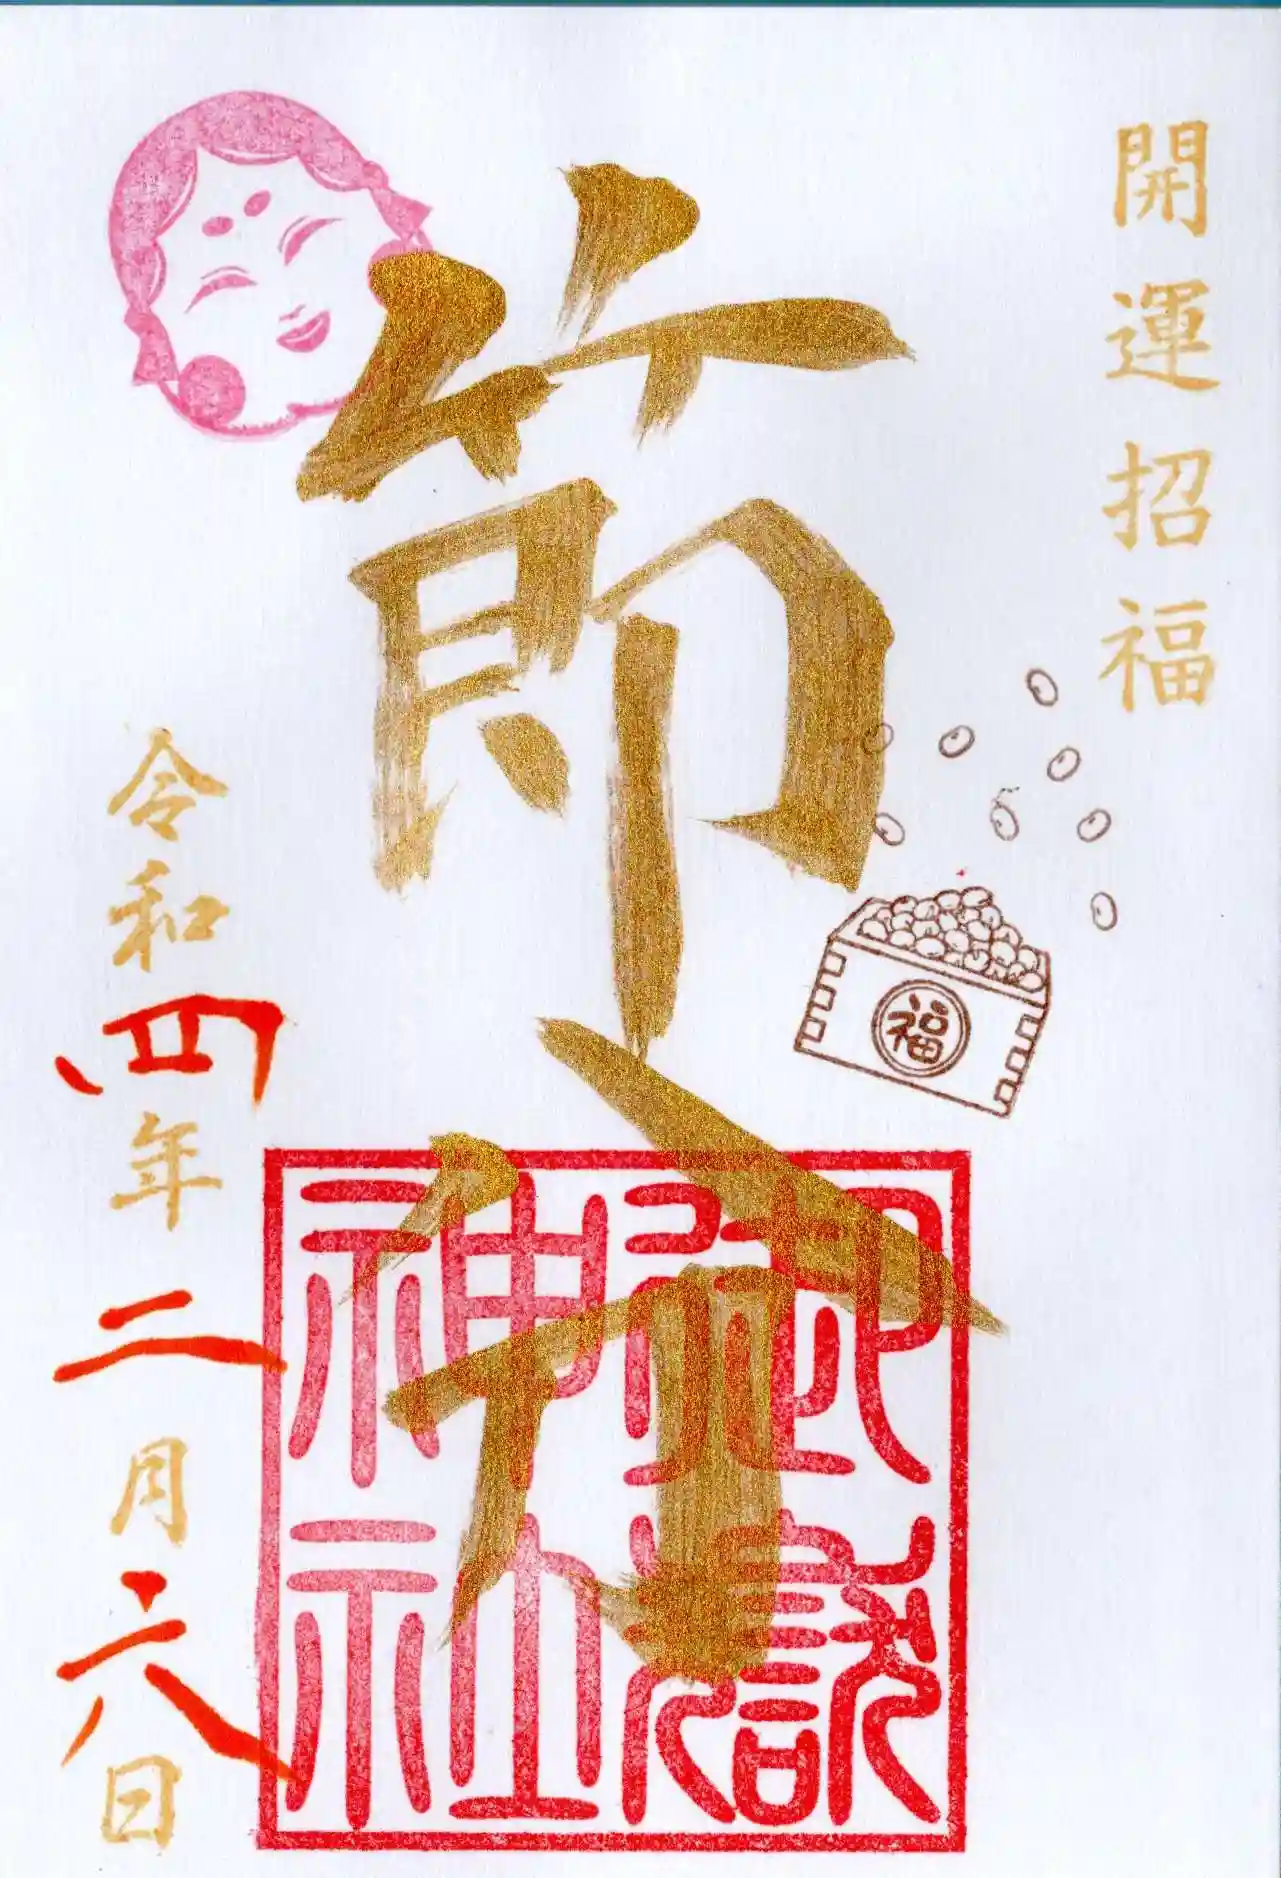 開運招福
節分
福
御獄神社
令和四年二月六日